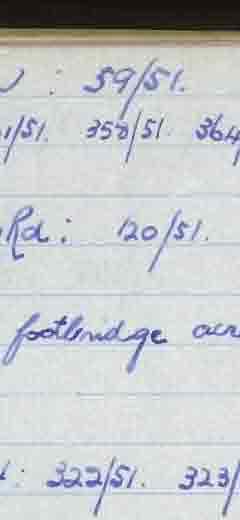 : 59/51.
1/51. 358/51. 364
Rd: 120/51.
footbridge acr
: 322/51. 323/